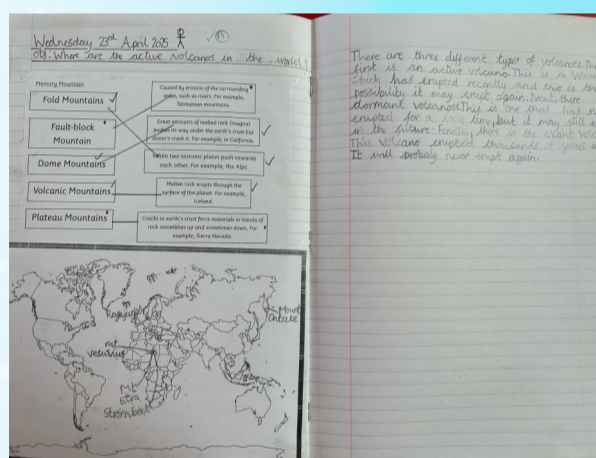 Wednesday 23rd April 2025
Obj: Where are the active volcanos in the world?
Memory Mountain
Fold Mountains
Fault-block
Mountain
Dome Mountains
Volcanic Mountains
Plateau Mountains
Caused by erosion of the surrounding
areas, such as rivers. For example,
Tasmanian mountains.
Great amounts of melted rock (magma)
pushes its way under the earth's crust but
doesn't crack it. For example, in California.
When two tectonic plates push towards
each other. For example, the Alps.
Molten rock erupts through the
surface of the planet. For example,
Iceland.
Cracks in earth's crust force materials or blocks of
rock sometimes up and sometimes down. For
example, Sierra Nevada.
Mount
Ontake
mt
Vesuvius
Mt
Etna
Stromboli
There are three different types of volcanoes. The
first is an active volcano. This is a volcan
which has erupted recently and there is the
possibility it may erupt again. Next, there
dormant volcanoes. This is one that has n
erupted for a long time, but it may still e
in the future. Finally, there is the extinct volc
This volcano erupted thousands of years a
It will probaly never erupt again.